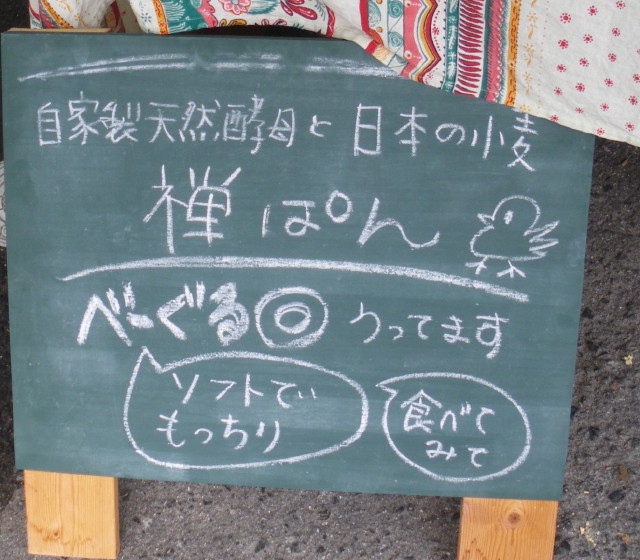 自家製天然酵母と日本の小麦
禅ぱん
べーぐる うってます
ソフトでぃ
もっちり
食べて
みて